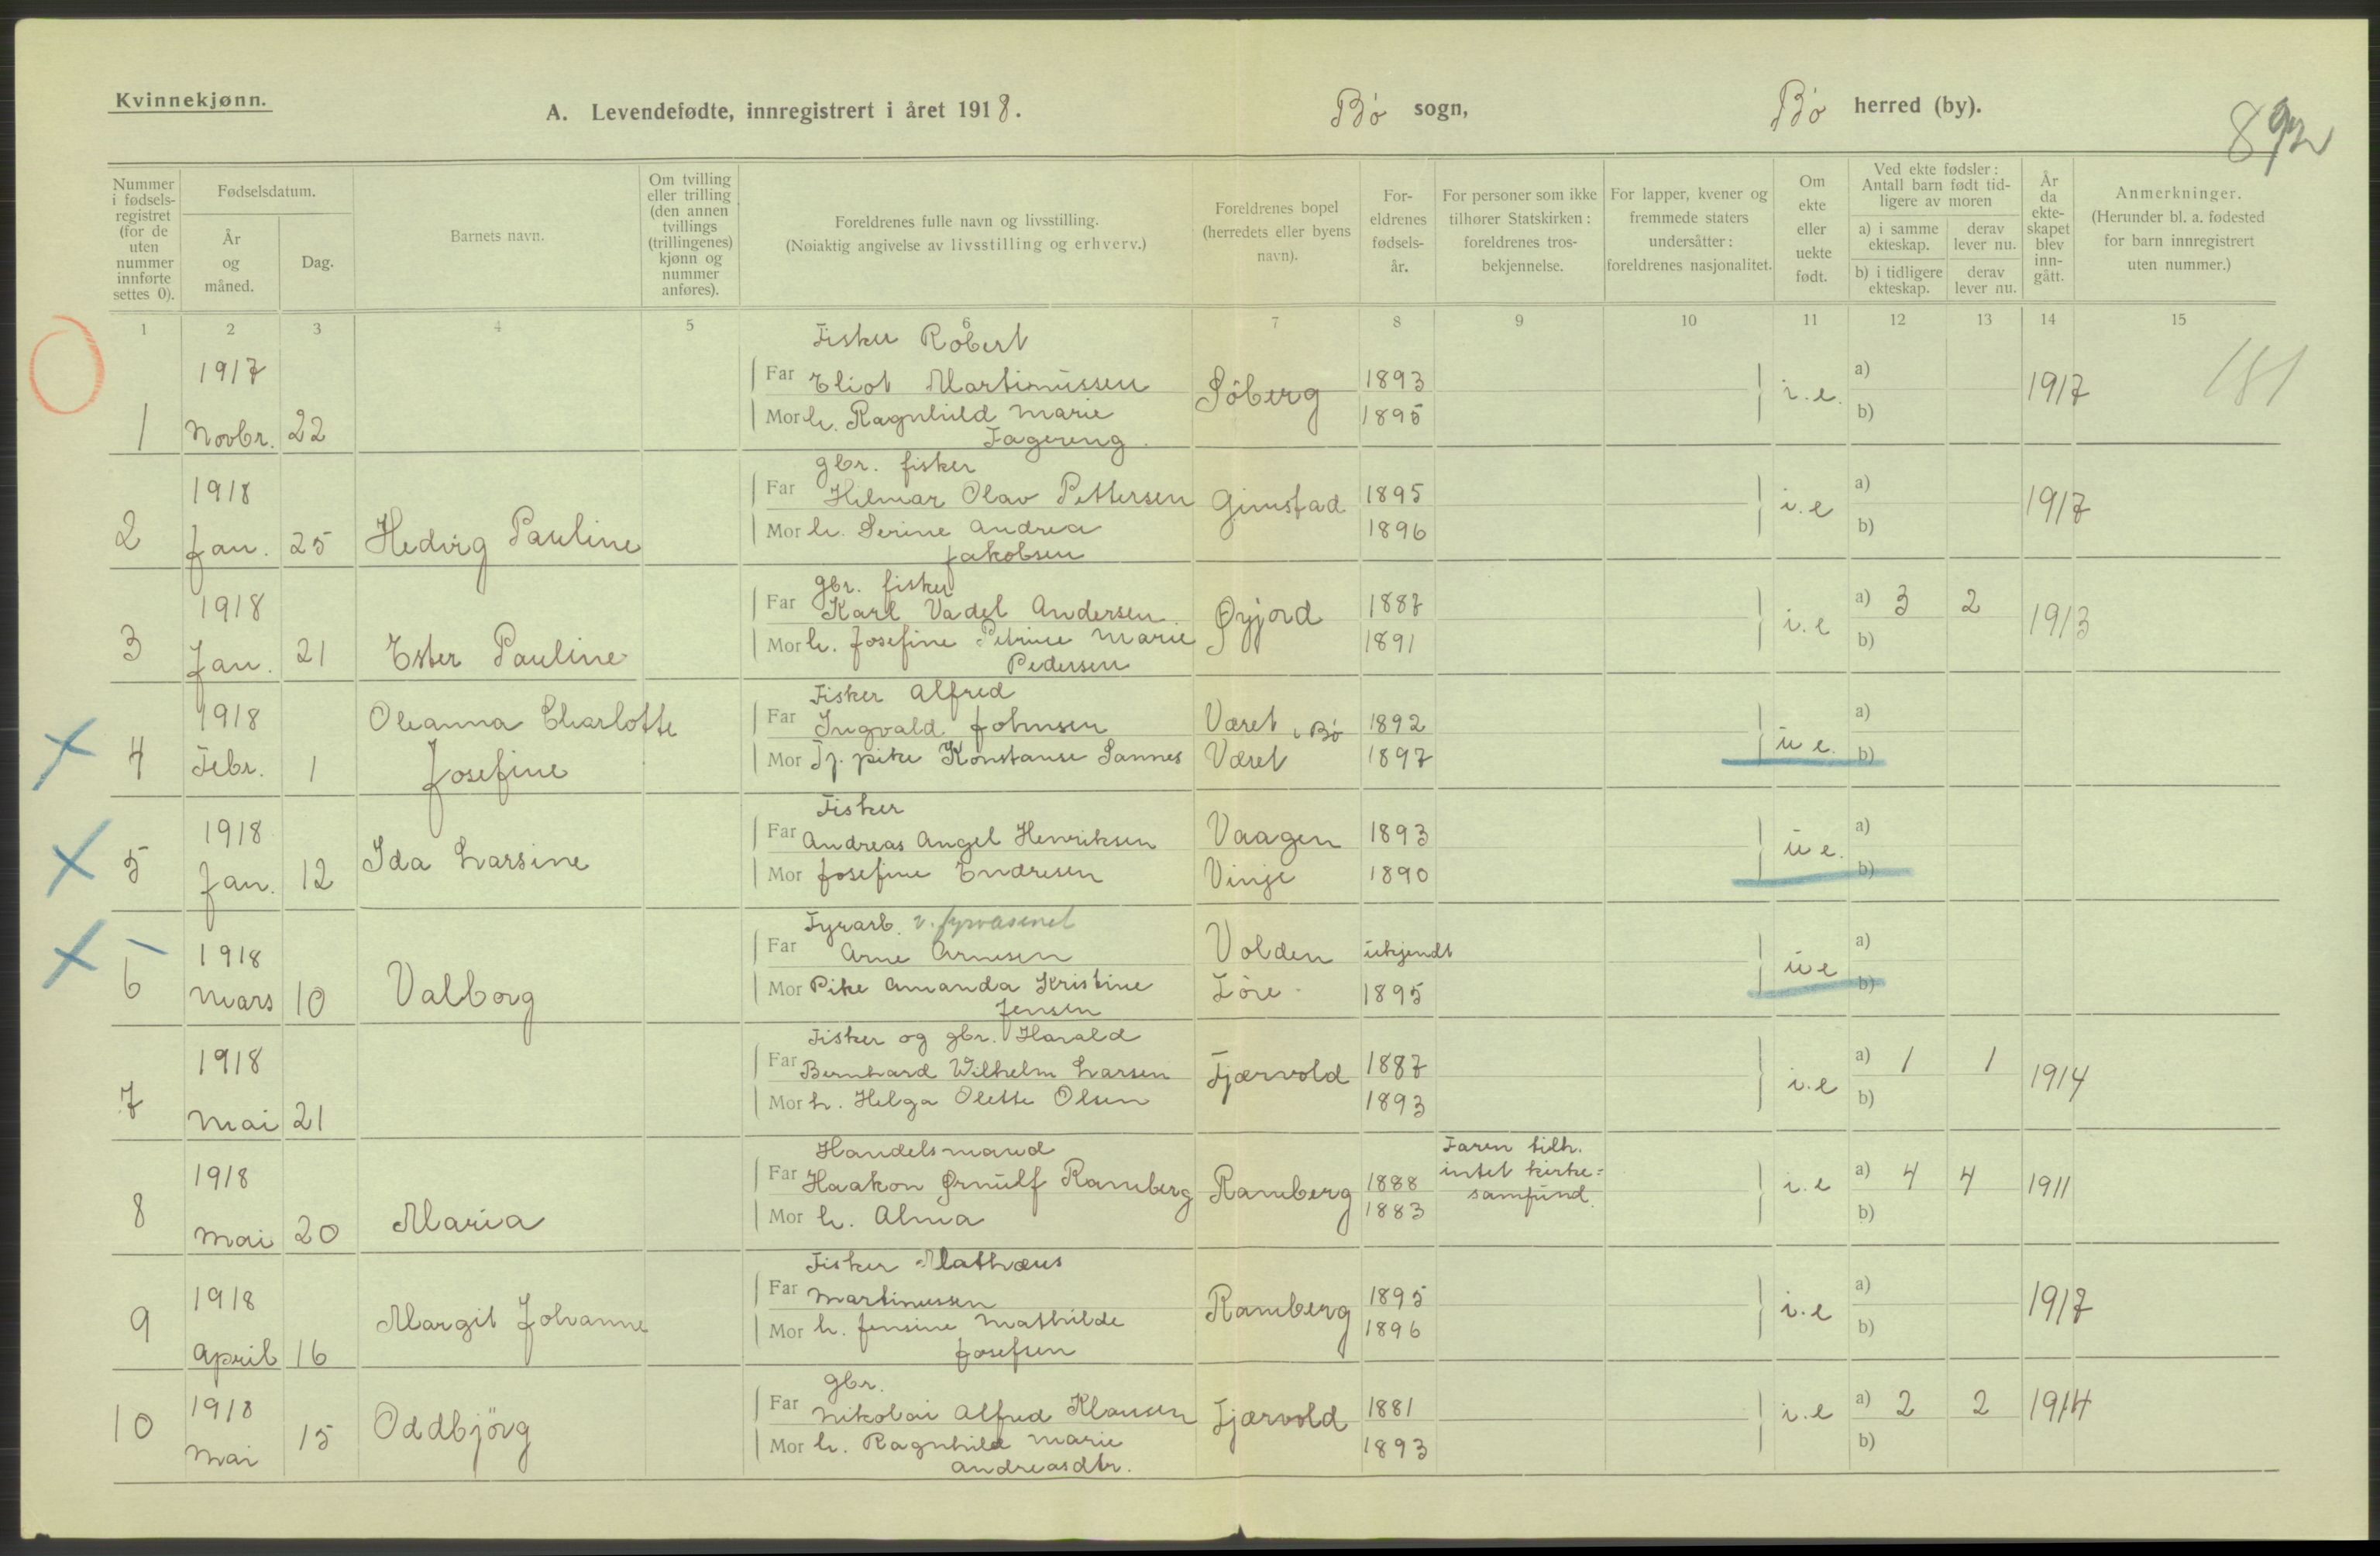 Kvinnekjønn.
A. Levendefødte, innregistrert i året 1918. Bø sogn, Bø herred (by).
892
Nummer i fødsels-registret (for de uten nummer innførte settes 0).
Fødselsdatum.
År og måned.
Dag.
Barnets navn.
Om tvilling eller trilling (den annen tvillings (trillingenes) kjønn og nummer anføres).
Foreldrenes fulle navn og livsstilling.
(Nøiaktig angivelse av livsstilling og erhverv.)
Foreldrenes bopel (herredets eller byens navn).
For-eldrenes fødsels-år.
For personer som ikke tilhører Statskirken: foreldrenes tros-bekjennelse.
For lapper, kvener og fremmede staters undersåtter: foreldrenes nasjonalitet.
Om ekte eller uekte født.
Ved ekte fødsler: Antall barn født tid-ligere av moren
a) i samme ekteskap. derav lever nu.
b) i tidligere ekteskap. derav lever nu.
År da ekte-skapet blev inn-gått.
Anmerkninger.
(Herunder bl. a. fødested for barn innregistrert uten nummer.)
1 2 3 4 5 6 7 8 9 10 11 12 13 14 15
Fisker Robert
1917 Far Eliot Martinussen Söberg 1893 i.e. a) 1917 181
1 Novbr. 22 Mor h. Ragnhild Marie 1895 b)
Fagereng.
gbr. fisker
1918 Far Hilmar Olav Pettersen Gimstad 1895 i.e a) 1917
2 Jan. 25 Hedvig Pauline Mor h. Serine Andrea 1896 b)
Jakobsen
gbr. fisker
1918 Far Karl Vadel Andersen Øyjord 1887 i.e a) 3 2 1913
3 Jan. 21 Ester Pauline Mor h. Josefine Petrine Marie 1891 b)
Pedersen
Fisker Alfred
1918 Oleanna Charlotte Far Ingvald Johnsen Været i Bø 1892 u e. a)
4 Febr. 1 Josefine Mor Tj. pike Konstanse Sannes Været 1897 b)
Fisker
1918 Far Andreas Angel Henriksen Vaagen 1893 u e. a)
5 Jan. 12 Ida Larsine Mor Josefine Endresen Vinje 1890 b)
Fyrarb. v. fyrvæsenet
1918 Far Arne Arnesen Volden ukjendt u e a)
6 Mars 10 Valborg Mor Pike Amanda Kristine 1895 b)
Jensen
Fisker og gbr. Harald
1918 Far Bernhard Wilhelm Larsen Fjærvold 1887 i.e a) 1 1 1914
7 Mai 21 Mor h. Helga Olette Olsen 1893 b)
Handelsmand Faren tilh.
1918 Far Haakon Ørnulf Ramberg Ramberg 1888 intet kirke= i.e a) 4 4 1911
8 Mai 20 Maria Mor h. Alma 1883 samfund. b)
Fisker Mathæus
1918 Far Martinussen Ramberg 1895 i.e a) 1917
9 April 16 Margit Johanne Mor h. Jensine Mathilde 1896 b)
Josefsen
gbr.
1918 Far Nikolai Alfred Klausen Fjærvold 1881 i.e a) 2 2 1914
10 Mai 15 Oddbjörg Mor h. Ragnhild Marie 1893 b)
Andreasdtr.